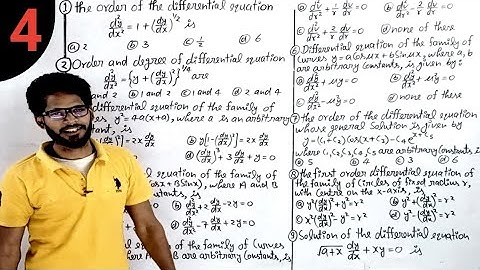 4
① the order of the differential equation
d²y/dx² = 1 + (dy/dx)^1/2 is
a) 2 b) 3 c) 1/2 d) 6
② Order and degree of differential equation
d²y/dx² = {y + (dy/dx)²}^1/4 are
and 2 b) 1 and 2 c) 1 and 4 d) 2 and 4
differential equation of the family of
curves y² = 4a(x+a), where a is an arbitrary
constant, is
= 2x dy/dx b) y[1-(dy/dx)²] = 2x dy/dx
d) (dy/dx)³ + 3 dy/dx + y = 0
equation of the family of
cosx + Bsinx), where A and B
constants, is
b) d²y/dx² + 2 dy/dx - 2y = 0
d) d²y/dx² - 7 dy/dx + 2y = 0
equation of the family of curves
where A and B are arbitrary constants, is
a) d²v/dx² + 1/x dv/dx = 0 b) dv/dx - 2/x dv/dx = 0
d) none of these
⑥ Differential equation of the family of
curves y = a cosμx + b sinμx, where a, b
are arbitrary constants, is given by
d) none of these
⑦ the order of the differential equation
whose general solution is given by
y = (c₁+c₂) cos(x+c₃) - c₄e^x+c₅
where c₁, c₂, c₃, c₄, c₅ are arbitrary constants is
a) 5 b) 4 c) 3 d) 6
⑧ the first order differential equation of
the family of circles of fixed radius r,
with centre on the x-axis, is
a) y²(dy/dx)² + y² = r²
⑨ Solution of the differential equation
√a+x dy/dx + xy = 0 is